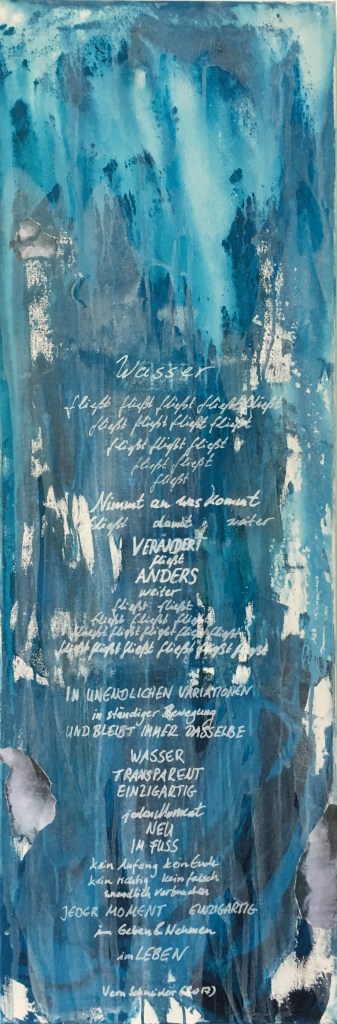 Wasser
fließt fließt fließt fließt fließt
fließt fließt fließt fließt fließt
fließt fließt fließt fließt
fließt fließt
fließt
Nimmt an was kommt
fließt damit weiter
VERÄNDERT
fließt
ANDERS
weiter
fließt fließt
fließt fließt fließt fließt
fließt fließt fließt fließt fließt
fließt fließt fließt fließt fließt fließt
IN UNENDLICHEN VARIATIONEN
in ständiger Bewegung
UND BLEIBT IMMER DASSELBE
WASSER
TRANSPARENT
EINZIGARTIG
jeden Moment
NEU
IM FLUSS
kein Anfang kein Ende
kein richtig kein falsch
unendlich verbunden
JEDER MOMENT EINZIGARTIG
im Geben & Nehmen
im LEBEN
Schneider